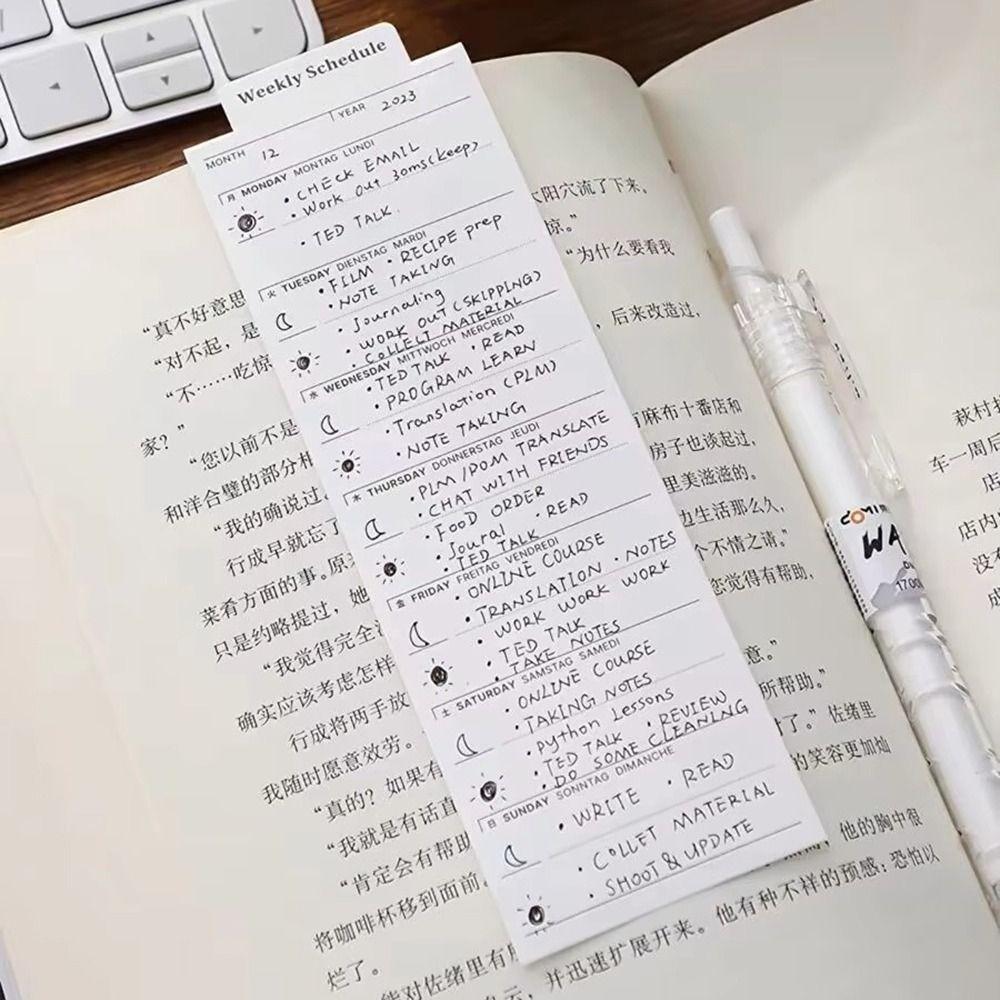 Weekly Schedule
MONTH 12 YEAR 2023
月 MONDAY MONTAG LUNDI
• CHECK EMAIL
• Work Out 30ms(keep)
• TED TALK
火 TUESDAY DIENSTAG MARDI
• FILM • RECIPE prep
• NOTE TAKING
• Journaling
• WORK OUT (SKIPPING)
• COLLECT MATERIAL
水 WEDNESDAY MITTWOCH MERCREDI
• TED TALK • READ
• PROGRAM LEARN
• Translation (PLM)
• NOTE TAKING
木 THURSDAY DONNERSTAG JEUDI
• PLM/POM TRANSLATE
• CHAT WITH FRIENDS
• FOOD ORDER
• Joural • READ
• TED TALK
金 FRIDAY FREITAG VENDREDI
• ONLINE COURSE
• TRANSLATION • NOTES
• WORK WORK WORK
• TED TALK
• TAKE NOTES
土 SATURDAY SAMSTAG SAMEDI
• ONLINE COURSE
• TAKING NOTES
• python Lessons
• TED TALK • REVIEW
• DO SOME CLEANING
日 SUNDAY SONNTAG DIMANCHE
• WRITE • READ
• COLLET MATERIAL
• SHOOT & UPDATE
太阳穴流了下来,
惊。”
“为什么要看我
“真不好意思
“对不起,是 ,后来改造过,
“不……吃惊
家?”
“您以前不是 有麻布十番店和
和洋合璧的部分 房子也谈起过,
“我的确说过 里美滋滋的。
行成早就忘了 边生活那么久,
菜肴方面的事。原 个不情之请。”
只是约略提过,她 您觉得有帮助,
“我觉得完全
确实应该考虑怎样 意。”
行成将两手放 所帮助。”
我随时愿意效劳。 了。”佐绪里
“真的?如果有 的笑容更加灿
“我就是有话直
“肯定会有帮助 他的胸中很
将咖啡杯移到面前。 他有种不祥的预感:恐怕以
烂了。 并迅速扩展开来。
能对佐绪里有
萩村
车一周后
店
店内
没有
成
WA